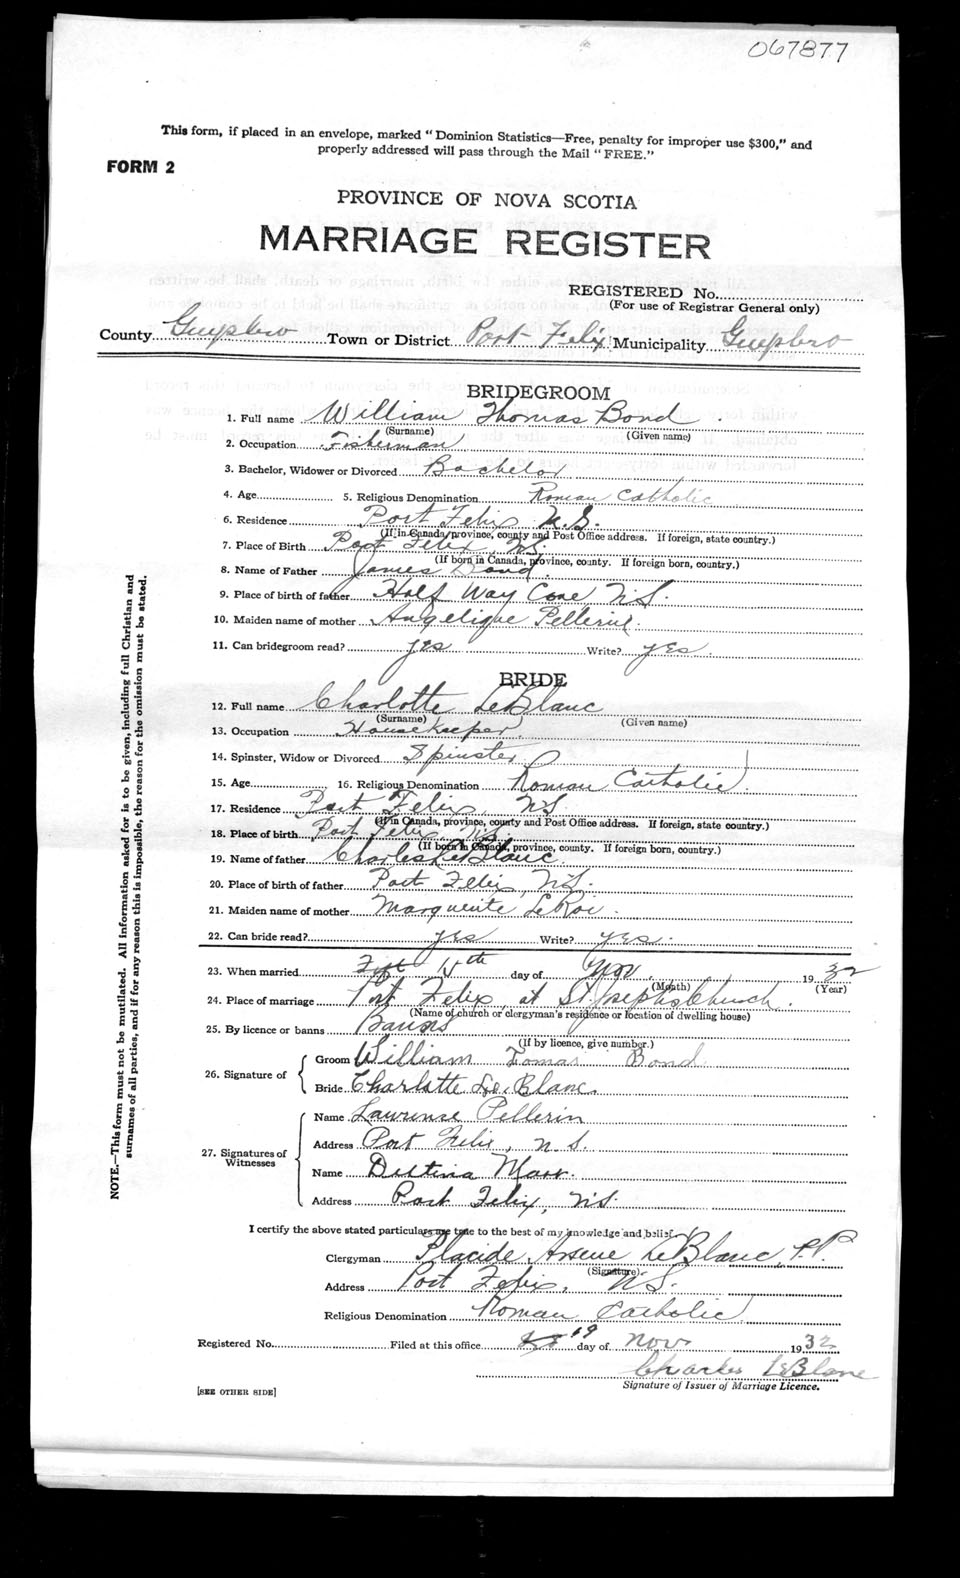 067877
This form, if placed in an envelope, marked "Dominion Statistics—Free, penalty for improper use $300," and
properly addressed will pass through the Mail "FREE."
FORM 2
PROVINCE OF NOVA SCOTIA
MARRIAGE REGISTER
REGISTERED No.
(For use of Registrar General only)
County Guysboro Town or District Port Felix Municipality Guysboro
BRIDEGROOM
1. Full name William Thomas Bond.
(Surname) (Given name)
2. Occupation Fisherman
3. Bachelor, Widower or Divorced Bachelor
4. Age 5. Religious Denomination Roman Catholic
6. Residence Port Felix N.S.
(If in Canada, province, county and Post Office address. If foreign, state country.)
7. Place of Birth Port Felix, NS.
(If born in Canada, province, county. If foreign born, country.)
8. Name of Father James Bond
9. Place of birth of father Half Way Cove NS.
10. Maiden name of mother Angelique Pellerine
11. Can bridegroom read? yes Write? yes.
BRIDE
12. Full name Charlotte LeBlanc
(Surname) (Given name)
13. Occupation Housekeeper
14. Spinster, Widow or Divorced Spinster
15. Age 16. Religious Denomination Roman Catholic
17. Residence Port Felix, NS
(If in Canada, province, county and Post Office address. If foreign, state country.)
18. Place of birth Port Felix, NS.
(If born in Canada, province, county. If foreign born, country.)
19. Name of father Charles LeBlanc.
20. Place of birth of father Port Felix, NS.
21. Maiden name of mother Marguerite LeRoi.
22. Can bride read? yes Write? yes.
23. When married 15th day of Nov. 1932
(Month) (Year)
24. Place of marriage Port Felix, at St. Joseph's Church.
(Name of church or clergyman's residence or location of dwelling house)
25. By licence or banns Banns
(If by licence, give number.)
26. Signature of
Groom William Tomas Bond
Bride Charlotte Le Blanc.
27. Signatures of Witnesses
Name Lawrense Pellerin
Address Port Felix, N.S.
Name Destina
Address Port Felix, N.S.
I certify the above stated particulars are true to the best of my knowledge and belief.
Clergyman Placide Arsene LeBlanc, P.P.
(Signature)
Address Port Felix, N.S.
Religious Denomination Roman Catholic
Registered No. Filed at this office 19 day of Nov 1932
Charles LeBlanc
Signature of Issuer of Marriage Licence.
[SEE OTHER SIDE]
NOTE.—This form must not be mutilated. All information asked for is to be given, including full Christian and
surnames of all parties, and if for any reason this is impossible, the reason for the omission must be stated.